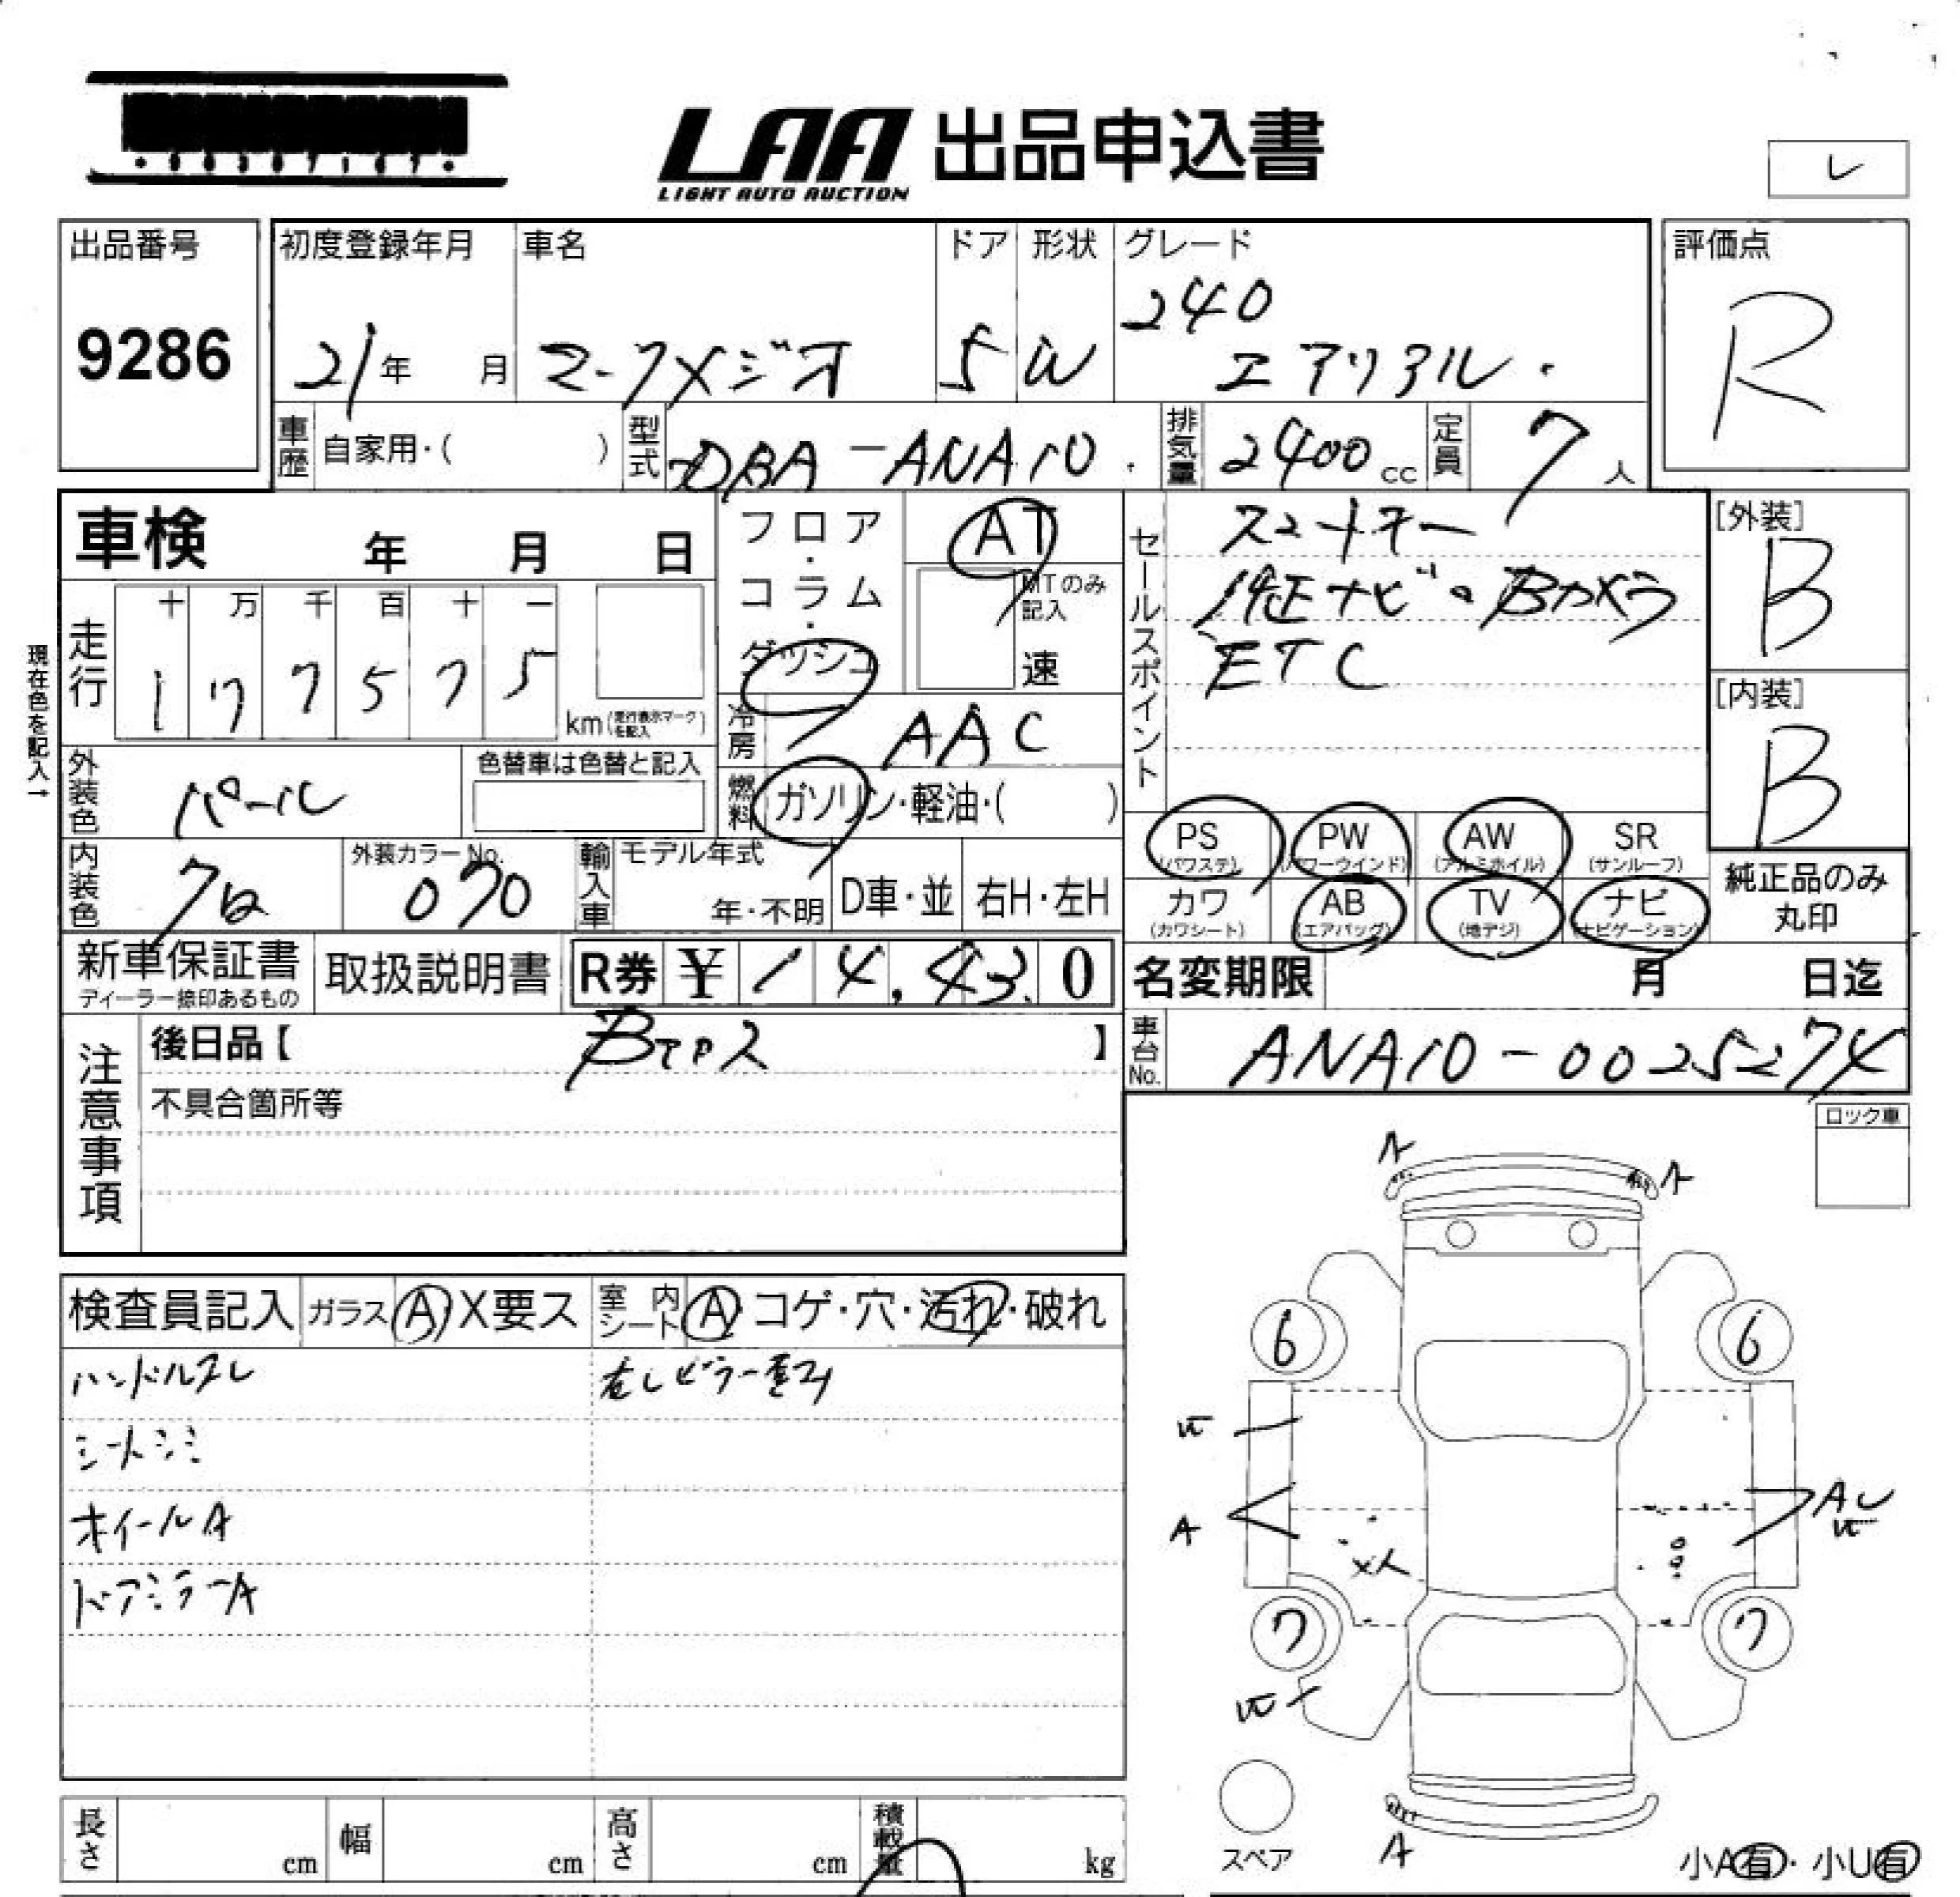 LAA 出品申込書
LIGHT AUTO AUCTION
レ
出品番号 9286
初度登録年月 21年 月
車名 マークXジオ
ドア 5
形状 W
グレード 240 エアリアル
評価点 R
車歴 自家用・( )
型式 DBA-ANA10
排気量 2400cc
定員 7人
車検 年 月 日
フロア・コラム・ダッシュ
AT
MTのみ記入
速
セールスポイント
スマートキー
純正ナビ・Bカメラ
ETC
[外装] B
[内装] B
現在色を記入→
走行 十 万 千 百 十 一
1 7 7 5 7 5
km(走行表示マークを記入)
冷房 AAC
外装色 パール
色替車は色替と記入
燃料 ガソリン・軽油・( )
内装色
外装カラーNo. 070
輸入車 モデル年式 年・不明
D車・並
右H・左H
PS (パワステ)
PW (パワーウインド)
AW (アルミホイル)
SR (サンルーフ)
カワ (カワシート)
AB (エアバッグ)
TV (地デジ)
ナビ (ナビゲーション)
純正品のみ丸印
新車保証書 ディーラー捺印あるもの
取扱説明書
R券 ¥14,430
名変期限 月 日迄
注意事項
後日品【 】
不具合箇所等
車台No. ANA10-0025274
ロック車
検査員記入
ガラス A X要ス
室内シート A・コゲ・穴・汚れ・破れ
ハンドルスレ
シートシミ
ホイールA
ドアミラーA
A A
6 6
A
A
7 7
A
スペア
小A有・小U有
長さ cm
幅 cm
高さ cm
積載量 kg